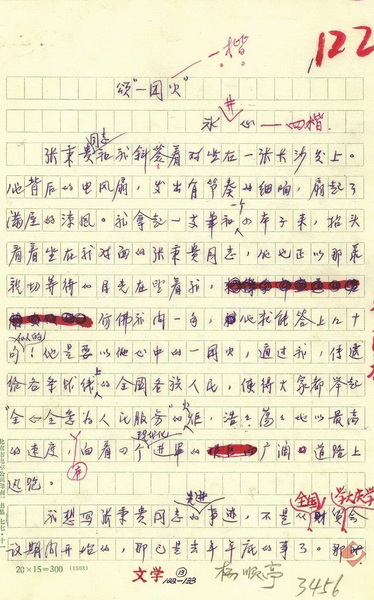 一楷
122
颂“一团火”
冰心 四楷
张秉贵同志和我斜签着对坐在一张大沙发上。
他背后的电风扇，发出有节奏的细响，扇起了
满屋的凉风。我拿起一支笔和一个小本子来，抬头
看着坐在我对面的张秉贵同志，他也正以那
切等待的目光在望着我，
仿佛我问一句，他就能答上几十
句似的！他是要以他心中的一团火，通过我，传递
给各条战线上的全国各族人民，使得大家都举起
“全心全意为人民服务”的火炬，浩浩荡荡地以最高
的速度，向着四个现代化进军的广阔的道路上
迅跑。
我想写张秉贵同志的先进事迹，不是从全国财贸学大庆学会
议期间开始的，那已是去年年底的事了。那时
20×15=300 (1501) 文学 ⑬ 122-123 杨顺亭 3456